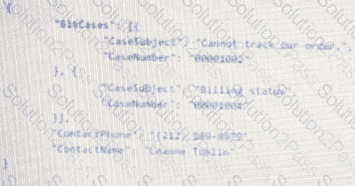 {
"B2BCases": [{
"CaseSubject": "Cannot track our order.",
"CaseNumber": "00001002"
}, {
"CaseSubject": "Billing status",
"CaseNumber": "00001004"
}],
"ContactPhone":
"ContactName": "Leanne
}